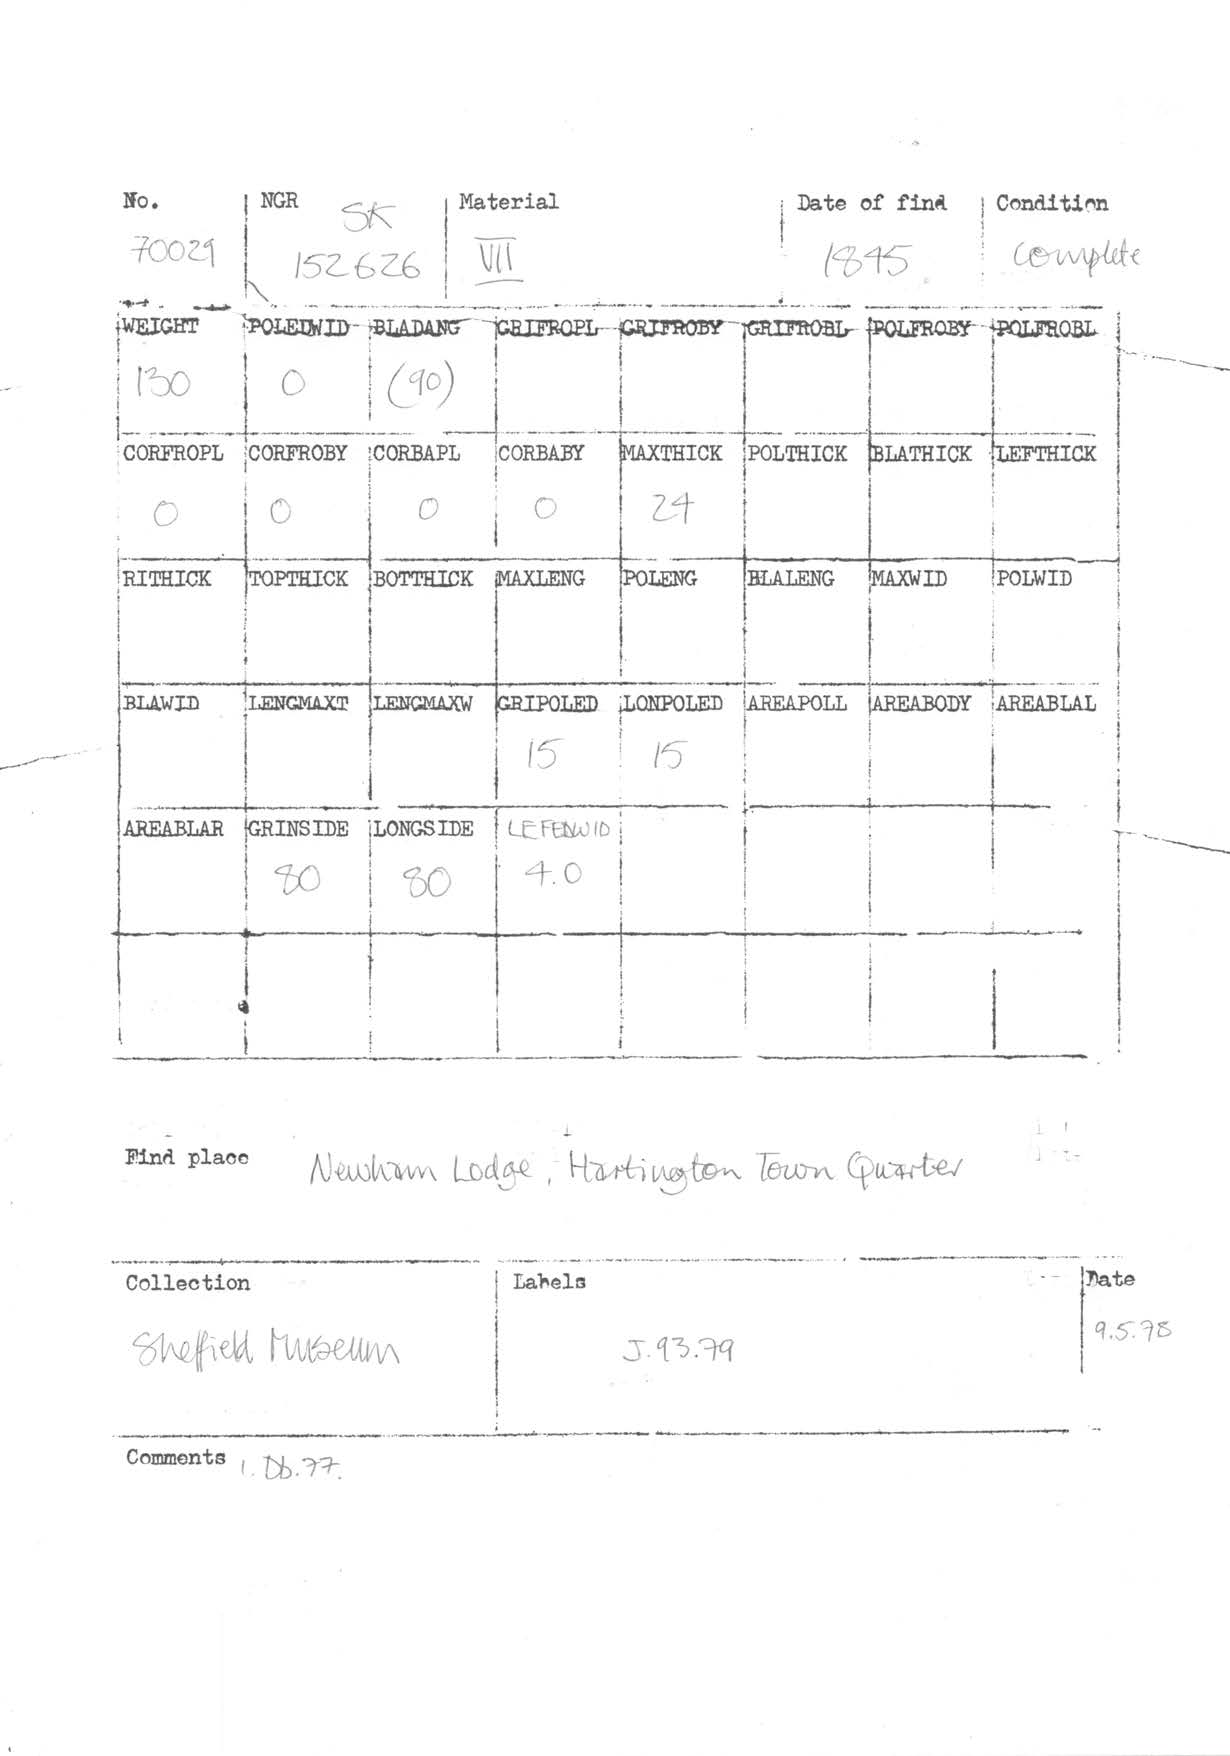 No. NGR Material Date of find Condition
SK
70029 152626 VII 1845 Complete
WEIGHT POLEDWID BLADANG GRIFROPL GRIFROBY GRIFROBL POLFROBY POLFROBL
130 0 (90)
CORFROPL CORFROBY CORBAPL CORBABY MAXTHICK POLTHICK BLATHICK LEFTHICK
0 0 0 0 24
RITHICK TOPTHICK BOTTHICK MAXLENG POLENG BLALENG MAXWID POLWID
BLAWID LENGMAXT LENGMAXW GRIPOLED LONPOLED AREAPOLL AREABODY AREABLAL
15 15
AREABLAR GRINSIDE LONGSIDE LEFEDWID
80 80 4.0
Find place Newham Lodge, Hartington Town Quarter
Collection Labels Date
Sheffield Museum J.93.79 9.5.78
Comments 1. Db.77.